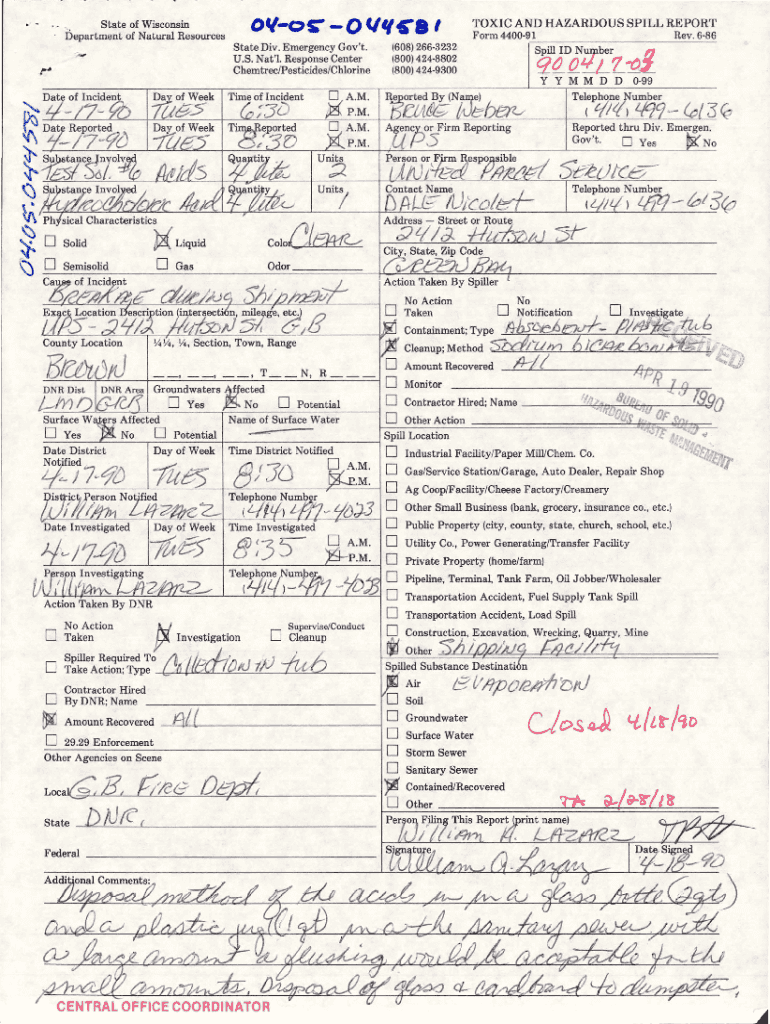 State of Wisconsin
Department of Natural Resources
04-05-044581
TOXIC AND HAZARDOUS SPILL REPORT
Form 4400-91 Rev. 6-86
State Div. Emergency Gov't. (608) 266-3232
U.S. Nat'l. Response Center (800) 424-8802
Chemtrec/Pesticides/Chlorine (800) 424-9300
Spill ID Number
900417-03
Y Y M M D D 0-99
04.05.044581
Date of Incident Day of Week Time of Incident A.M.
4-17-90 TUES 6:30 P.M.
Date Reported Day of Week Time Reported A.M.
4-17-90 TUES 8:30 P.M.
Substance Involved Quantity Units
Test Sol. #6 Acids 4 liter 2
Substance Involved Quantity Units
Hydrochloric Acid 4 liter 1
Physical Characteristics
Solid Liquid Color CLEAR
Semisolid Gas Odor
Cause of Incident
BREAKAGE during Shipment
Exact Location Description (intersection, mileage, etc.)
UPS - 2412 HUTSON St. G.B
County Location ¼¼, ¼, Section, Town, Range
BROWN , T N, R
DNR Dist DNR Area Groundwaters Affected
LMD GRB Yes No Potential
Surface Waters Affected Name of Surface Water
Yes No Potential
Date District Notified Day of Week Time District Notified A.M.
4-17-90 TUES 8:30 P.M.
District Person Notified Telephone Number
William LAZARZ (414) 497-4023
Date Investigated Day of Week Time Investigated A.M.
4-17-90 TUES 8:35 P.M.
Person Investigating Telephone Number
William LAZARZ (414) 497-4023
Action Taken By DNR
No Action Taken Investigation Supervise/Conduct Cleanup
Spiller Required To Take Action; Type Collection in tub
Contractor Hired By DNR; Name
Amount Recovered All
29.29 Enforcement
Other Agencies on Scene
Local G.B. FIRE Dept.
State DNR.
Federal
Reported By (Name) Telephone Number
BRUCE WEBER (414) 499-6136
Agency or Firm Reporting Reported thru Div. Emergen. Gov't.
UPS Yes No
Person or Firm Responsible
UNITED PARCEL SERVICE
Contact Name Telephone Number
DALE Nicolet (414) 499-6136
Address — Street or Route
2412 HUTSON St
City, State, Zip Code
GREEN BAY
Action Taken By Spiller
No Action Taken No Notification Investigate
Containment; Type Absorbent - Plastic tub
Cleanup; Method Sodium bicarbonate
Amount Recovered All
Monitor
Contractor Hired; Name
Other Action
RECEIVED
APR 19 1990
BUREAU OF SOLID
HAZARDOUS WASTE MANAGEMENT
Spill Location
Industrial Facility/Paper Mill/Chem. Co.
Gas/Service Station/Garage, Auto Dealer, Repair Shop
Ag Coop/Facility/Cheese Factory/Creamery
Other Small Business (bank, grocery, insurance co., etc.)
Public Property (city, county, state, church, school, etc.)
Utility Co., Power Generating/Transfer Facility
Private Property (home/farm)
Pipeline, Terminal, Tank Farm, Oil Jobber/Wholesaler
Transportation Accident, Fuel Supply Tank Spill
Transportation Accident, Load Spill
Construction, Excavation, Wrecking, Quarry, Mine
Other Shipping Facility
Spilled Substance Destination
Air EVAPORATION
Soil
Groundwater
Closed 4/18/90
Surface Water
Storm Sewer
Sanitary Sewer
Contained/Recovered
Other TA 2/28/18
Person Filing This Report (print name)
William A. LAZARZ
Signature Date Signed
William A. Lazarz 4-18-90
Additional Comments:
Disposal method of the acids in in a glass bottle (2qts)
and a plastic jug (1qt) in a the sanitary sewer with
a large amount a flushing would be acceptable for the
small amounts. Disposal of glass & cardboard to dumpster.
CENTRAL OFFICE COORDINATOR